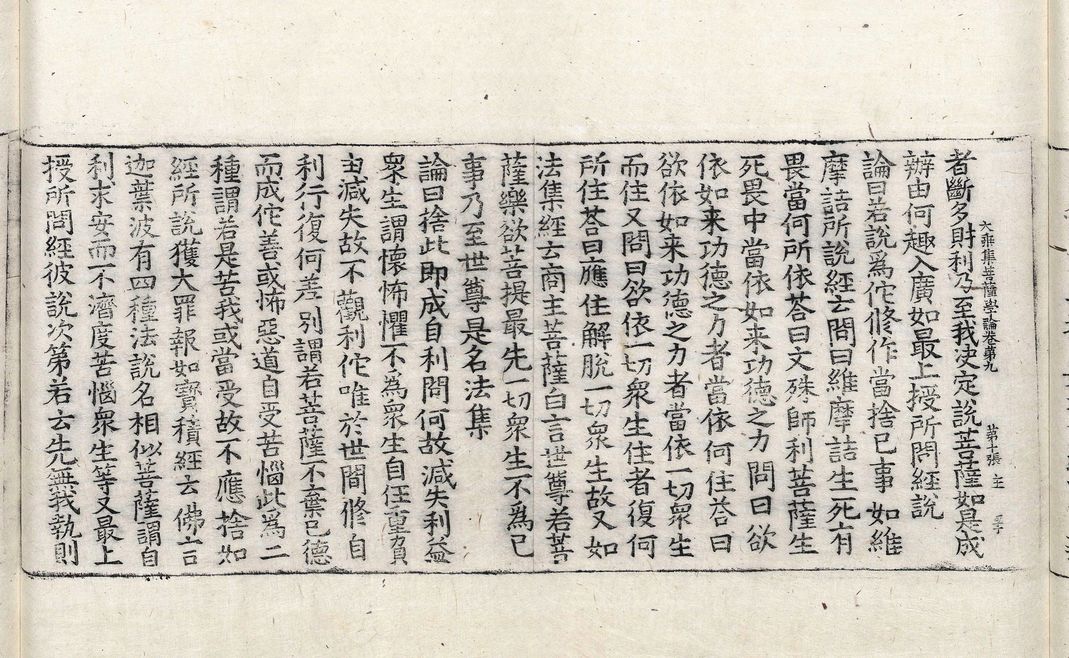 大乘集菩薩學論卷第九 第十張 主
者斷多財利乃至我決定說菩薩如是成
辦由何趣入廣如最上授所問經說
論曰若說爲佗修作當捨已事如維
摩詰所說經云問曰維摩詰生死有
畏當何所依荅曰文殊師利菩薩生
死畏中當依如来功德之力問曰欲
依如来功德之力者當依何住荅曰
欲依如来功德之力者當依一切衆生
而住又問曰欲依一切衆生住者復何
所住荅曰應住解脫一切衆生故又如
法集經云商主菩薩白言世尊若菩
薩樂欲菩提最先一切衆生不爲已
事乃至世尊是名法集
論曰捨此即成自利問何故減失利益
衆生謂懷怖懼不爲衆生自任重負
由減失故不觀利佗唯於世間修自
利行復何差別謂若菩薩不棄已德
而成佗善或怖惡道自受苦惱此爲二
種謂若是苦我或當受故不應捨如
經所說獲大罪報如寶積經云佛言
迦葉波有四種法說名相似菩薩謂自
利求安而不濟度苦惱衆生等又最上
授所問經彼說次第若云先無我執則